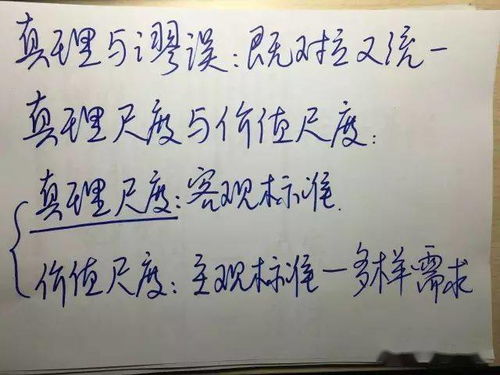 真理与谬误：既对立又统一
真理尺度与价值尺度：
真理尺度：客观标准.
价值尺度：主观标准—多样需求